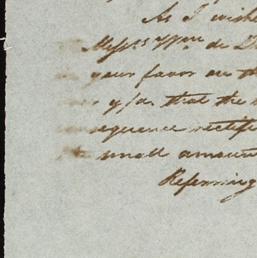 As I wish
Mess.rs
your favor on th
that the
sequence rectifi
small amoun
Referring